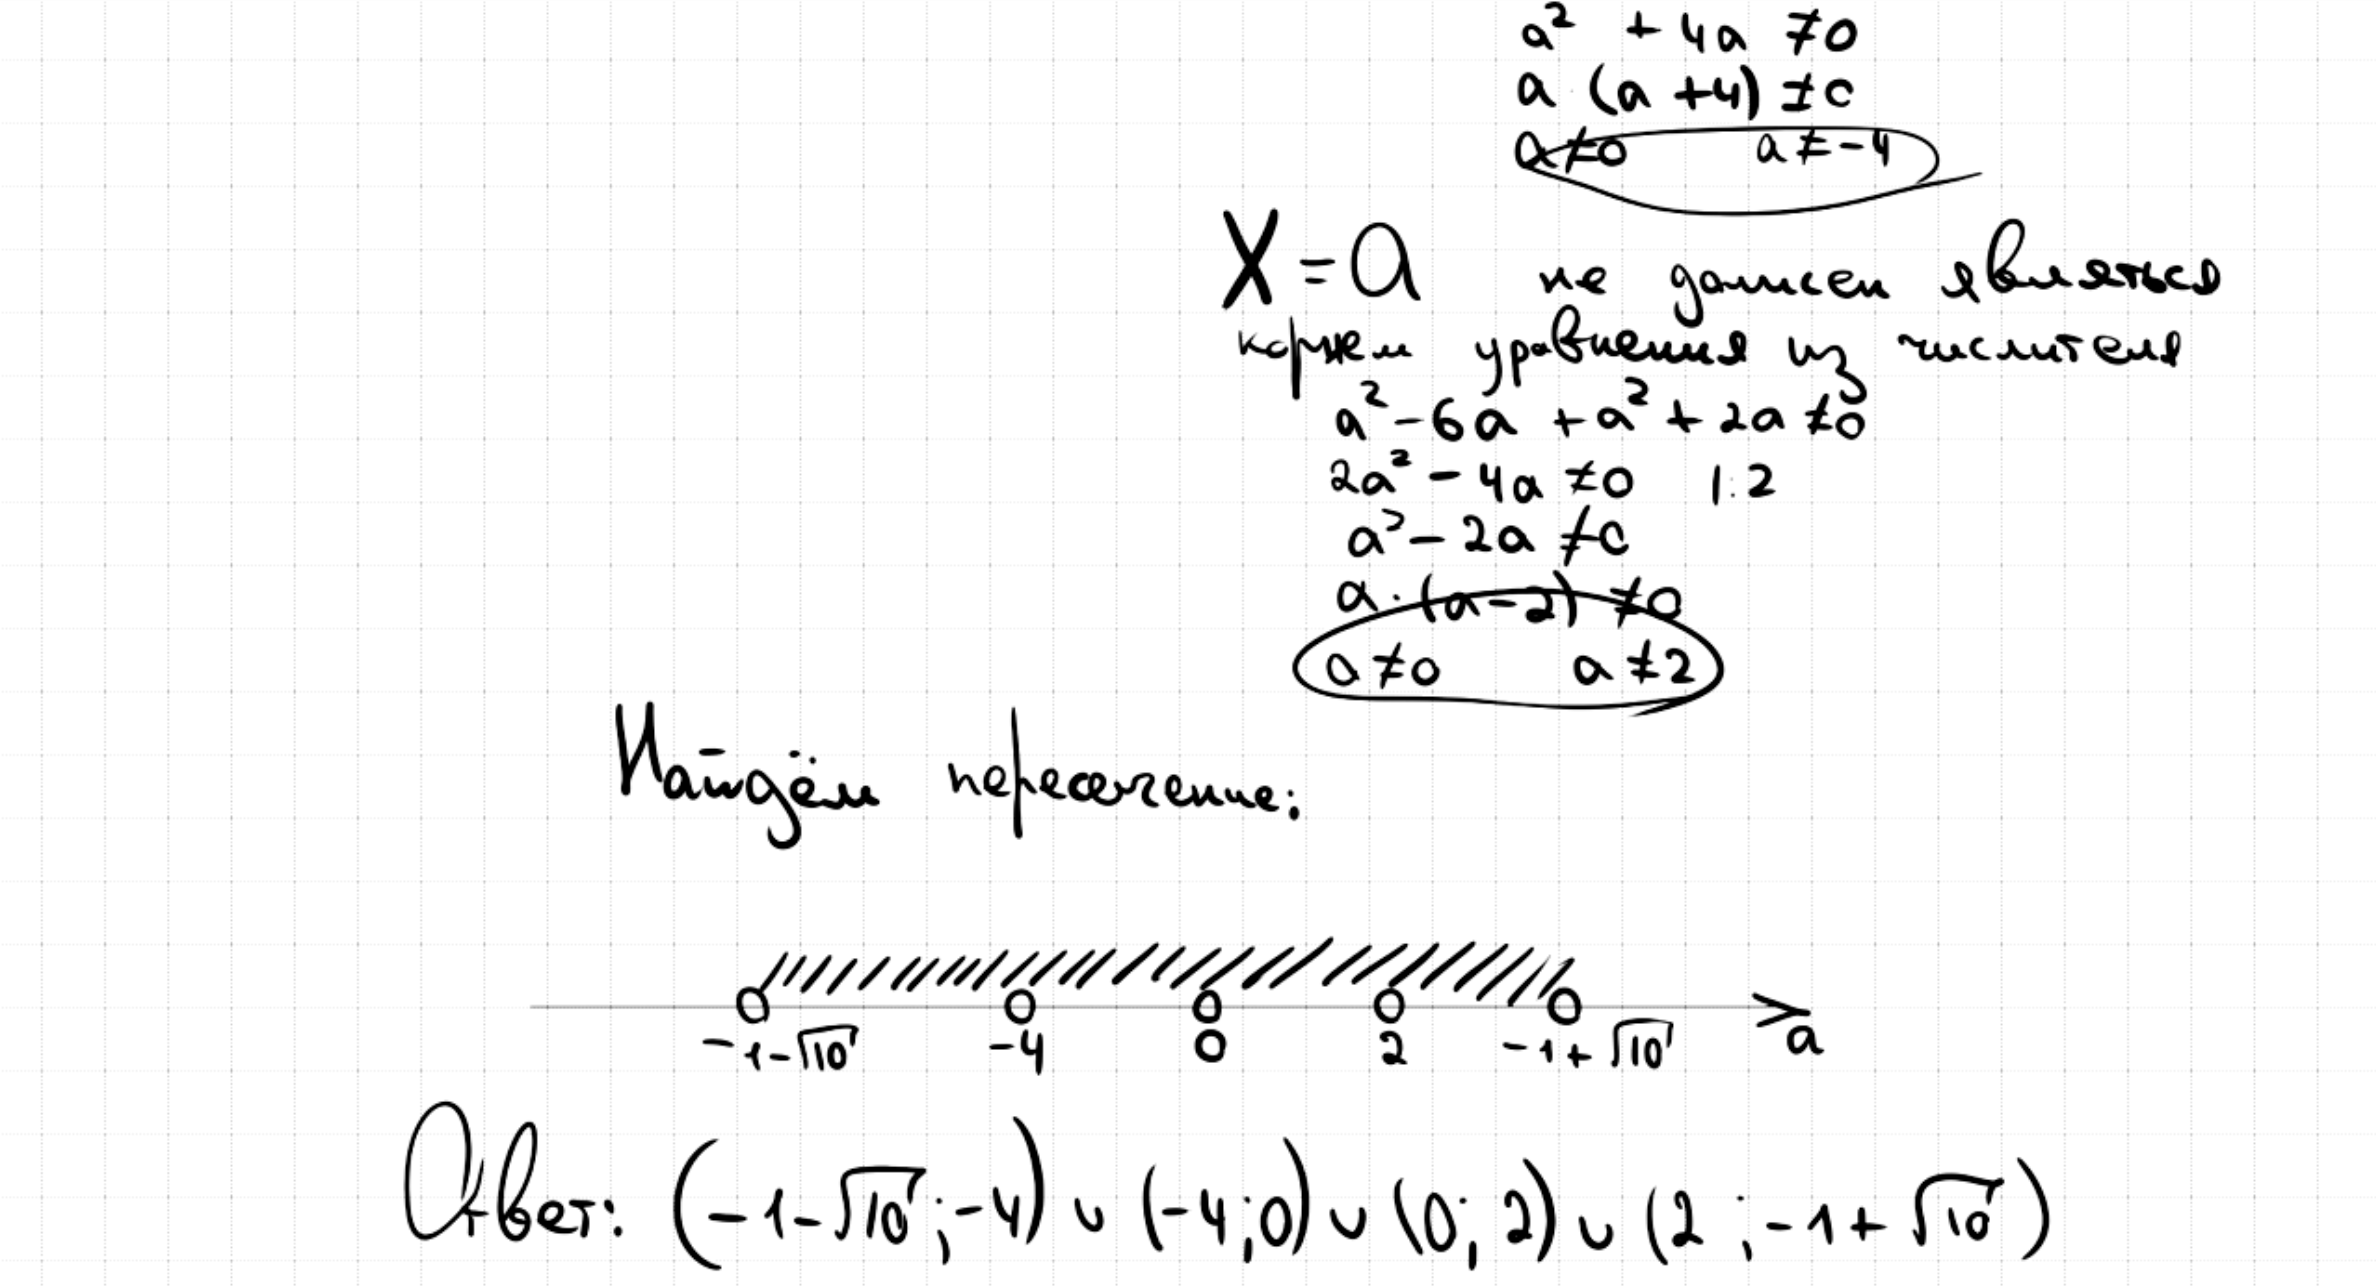 a² + 4a ≠0
a (a +4) ≠0
a≠0 a≠-4
X=a не должен являться
корнем уравнения из числителя
a²-6a +a²+2a ≠0
2a²-4a ≠0 |:2
a²-2a ≠0
a·(a-2) ≠0
a≠0 a≠2
Найдём пересечение:
-1-√10 -4 0 2 -1+√10 a
Ответ: (-1-√10;-4)∪(-4;0)∪(0;2)∪(2;-1+√10)